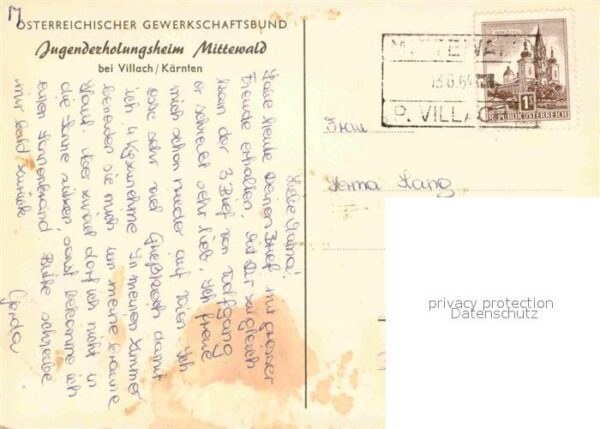 M
ÖSTERREICHISCHER GEWERKSCHAFTSBUND
Jugenderholungsheim Mittewald
bei Villach/Kärnten
Liebe Mama!
Habe heute Deinen Brief mit grosser
Freude erhalten. Mit Dir zugleich
kam der 3 Brief von Wolfgang
er schreibt sehr lieb. Ich freue
mich schon wieder auf Wien. Ich
esse sehr viel Grießkoch damit
ich 4 Kg zunehme. In meinen Zimmer
beneiden sie mich um meine braune
Haut aber zurauf darf ich nicht in
die Sonne sitzen, sonst bekomme ich
einen Sonnenbrand. Bitte schreibe
mir bald zurück
Gerda
MITTEWALD
13.6.64
P. VILLACH
1S
REPUBLIK ÖSTERREICH
Frau
Herma Lang
privacy protection
Datenschutz